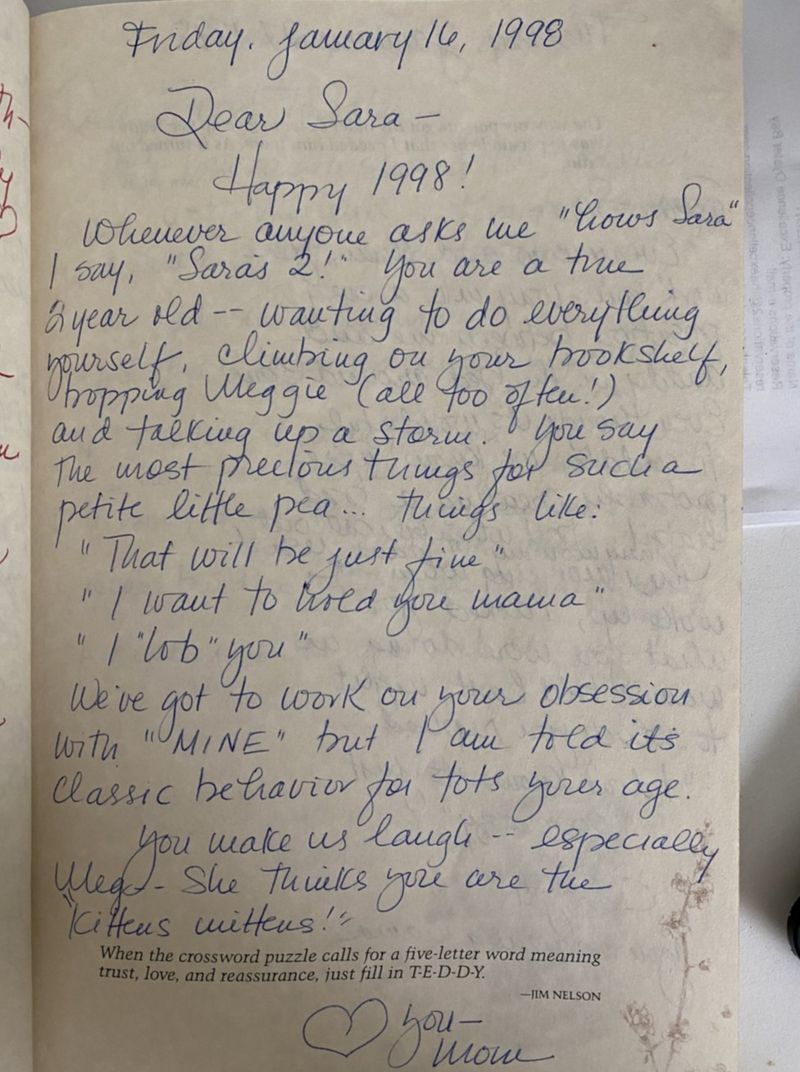 Friday, January 16, 1998
Dear Sara –
Happy 1998!
Whenever anyone asks me "hows Sara"
I say, "Saras 2!" You are a true
2 year old -- wanting to do everything
yourself, climbing on your bookshelf,
bopping Meggie (all too often!)
and talking up a storm. You say
the most precious things for such a
petite little pea... things like:
"That will be just fine"
"I want to hold you mama"
"I "lob" you"
We've got to work on your obsession
with "MINE" but I am told it's
classic behavior for tots your age.
You make us laugh -- especially
Meg - She thinks you are the
"Kittens mittens!"
When the crossword puzzle calls for a five-letter word meaning
trust, love, and reassurance, just fill in T-E-D-D-Y.
—JIM NELSON
♡ you –
Mom